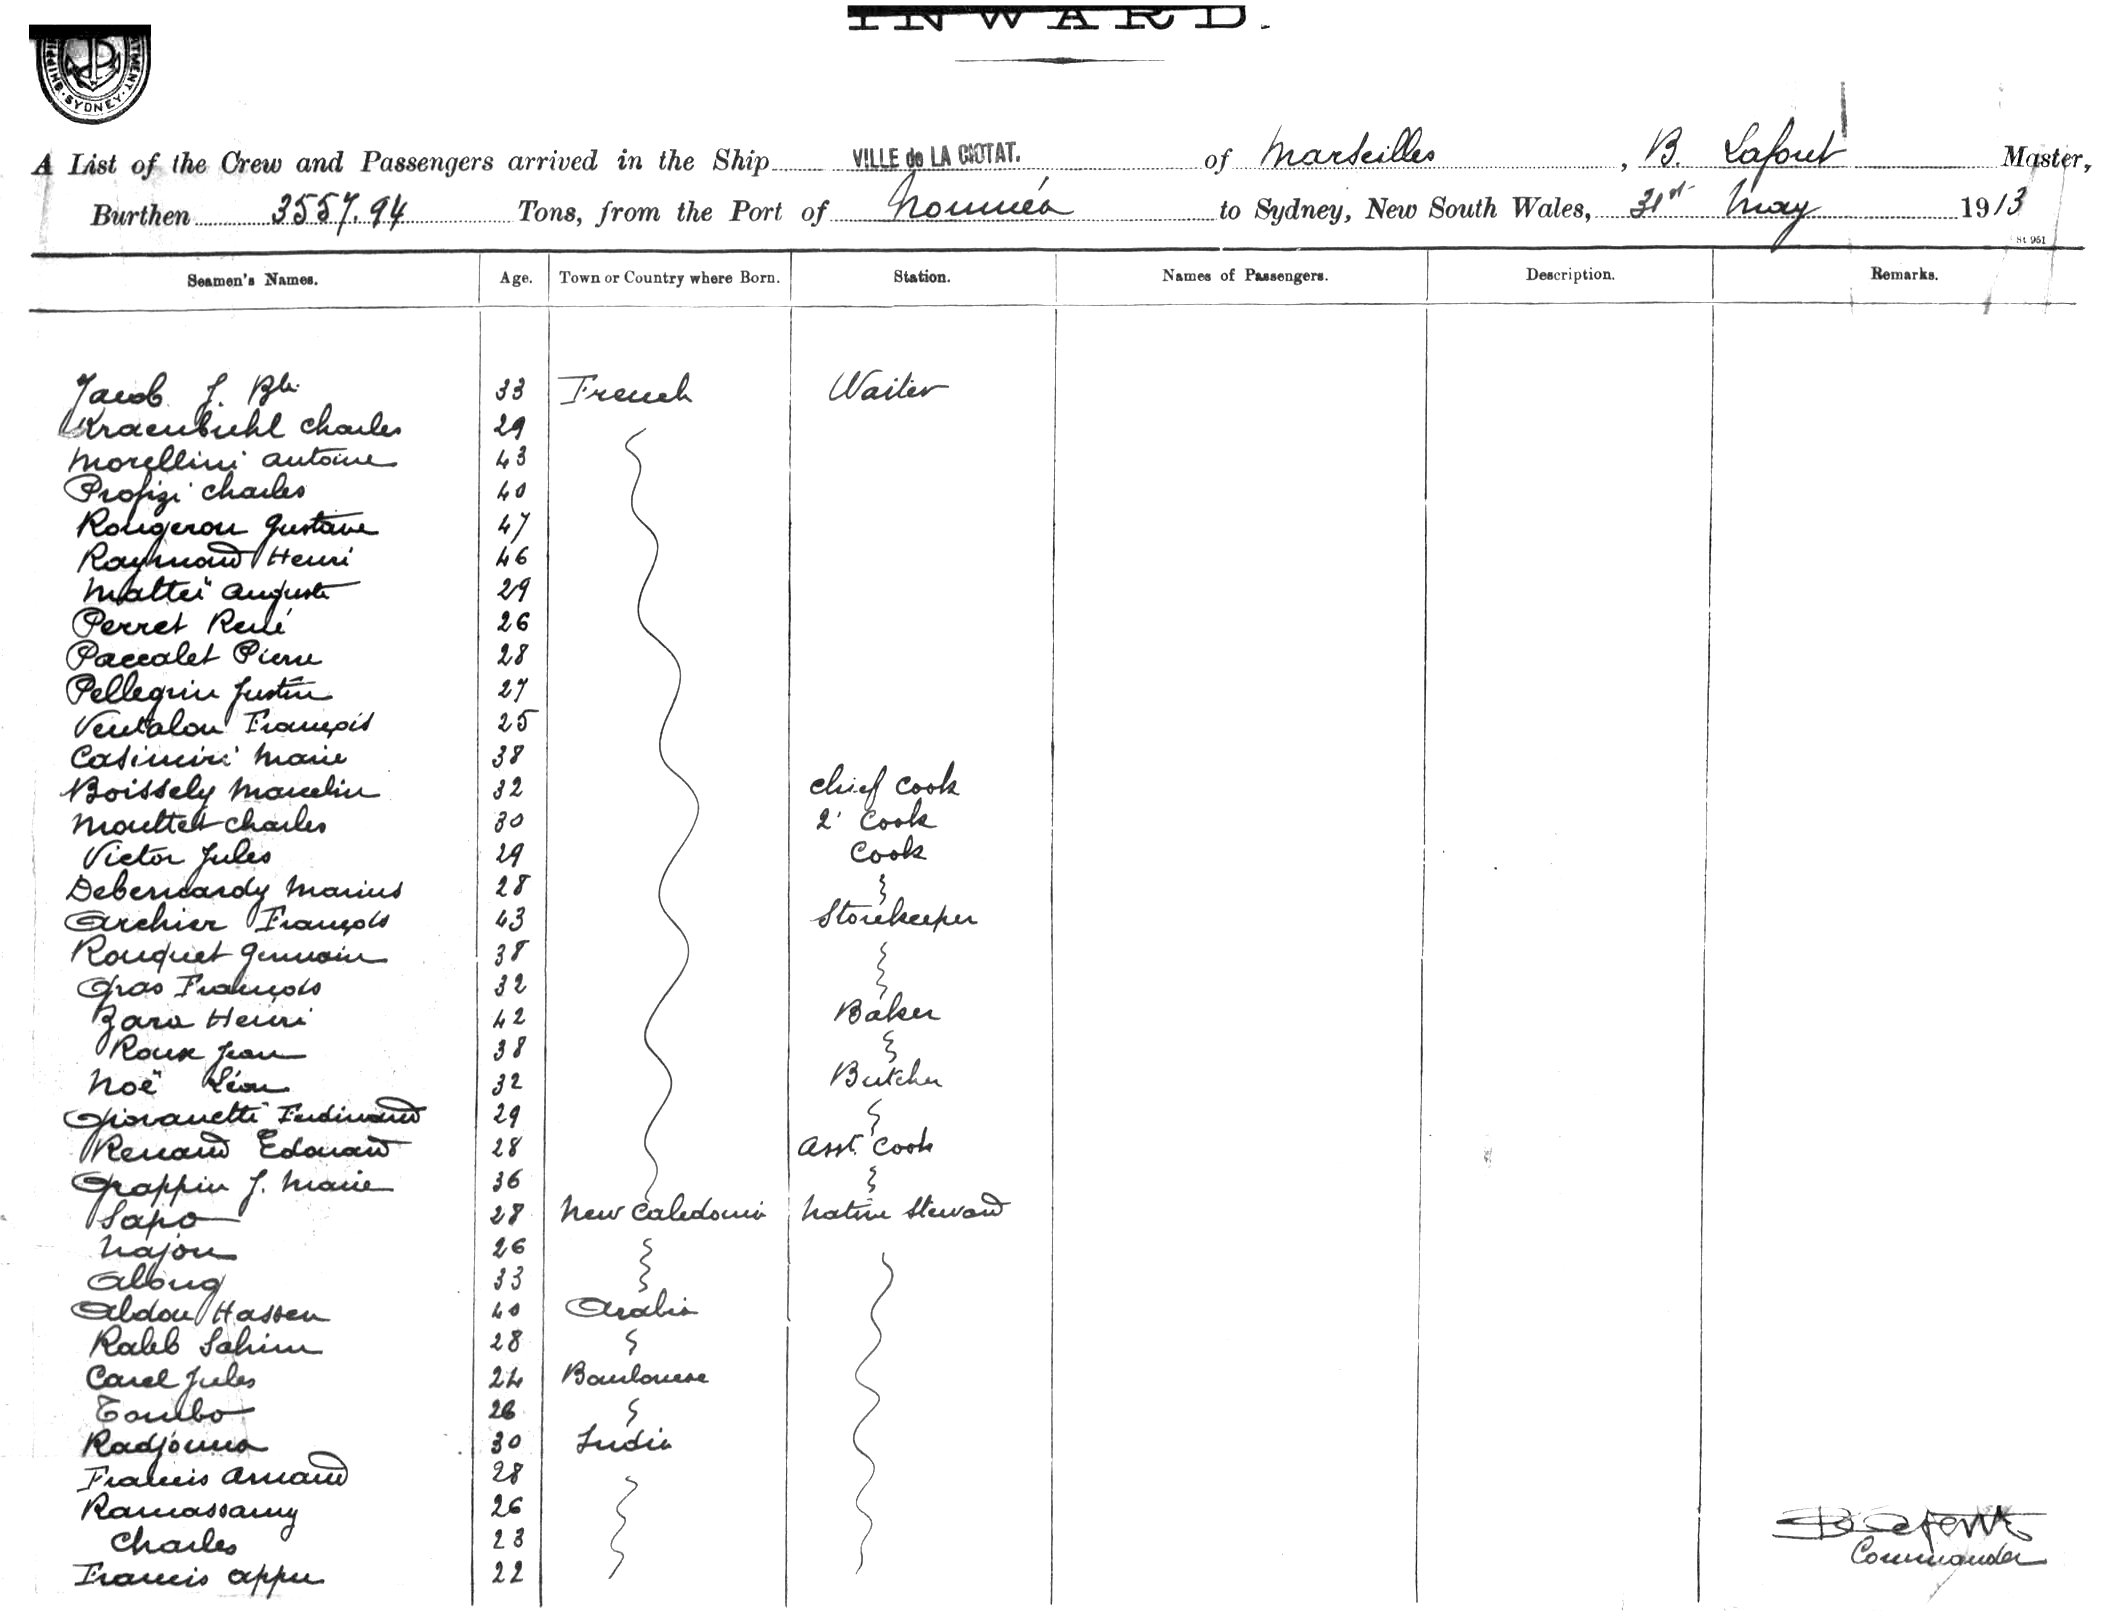 INWARD.
SHIPPING · SYDNEY · DEPARTMENT
A List of the Crew and Passengers arrived in the Ship VILLE de LA CIOTAT. of Marseilles, B. Lafont Master,
Burthen 3557.94 Tons, from the Port of Nouméa to Sydney, New South Wales, 31st May 1913
St 961
Seamen's Names. Age. Town or Country where Born. Station. Names of Passengers. Description. Remarks.
Jacob J. Bte 33 French Waiter
Kraenbuhl Charles 29
Morellini Antoine 43
Profizi Charles 40
Rougeron Gustave 47
Raymond Henri 46
Matteï Auguste 29
Perret René 26
Paccalet Pierre 28
Pellegrin Justin 27
Ventalon François 25
Casimiri Marie 38
Boissely Marcelin 32 Chief Cook
Mouttet Charles 30 2' Cook
Victor Jules 29 Cook
Debernardy Marius 28
Archier François 43 Storekeeper
Rouquet Germain 38
Gras François 32
Zara Henri 42 Baker
Roux Jean 38
Noë Léon 32 Butcher
Giovanetti Ferdinand 29
Renaud Edouard 28 Asst. Cook
Grappin J. Marie 36
Sapo 28 New Caledonia Native Steward
Najou 26
Aloug 33
Abdou Hassen 40 Arabia
Raleb Sahim 28
Carel Jules 24
Toumbo 26
Radjouma 30 India
Francis Arnaud 28
Ramassamy 26
Charles 23
Francis Appu 22
B Lafont
Commander